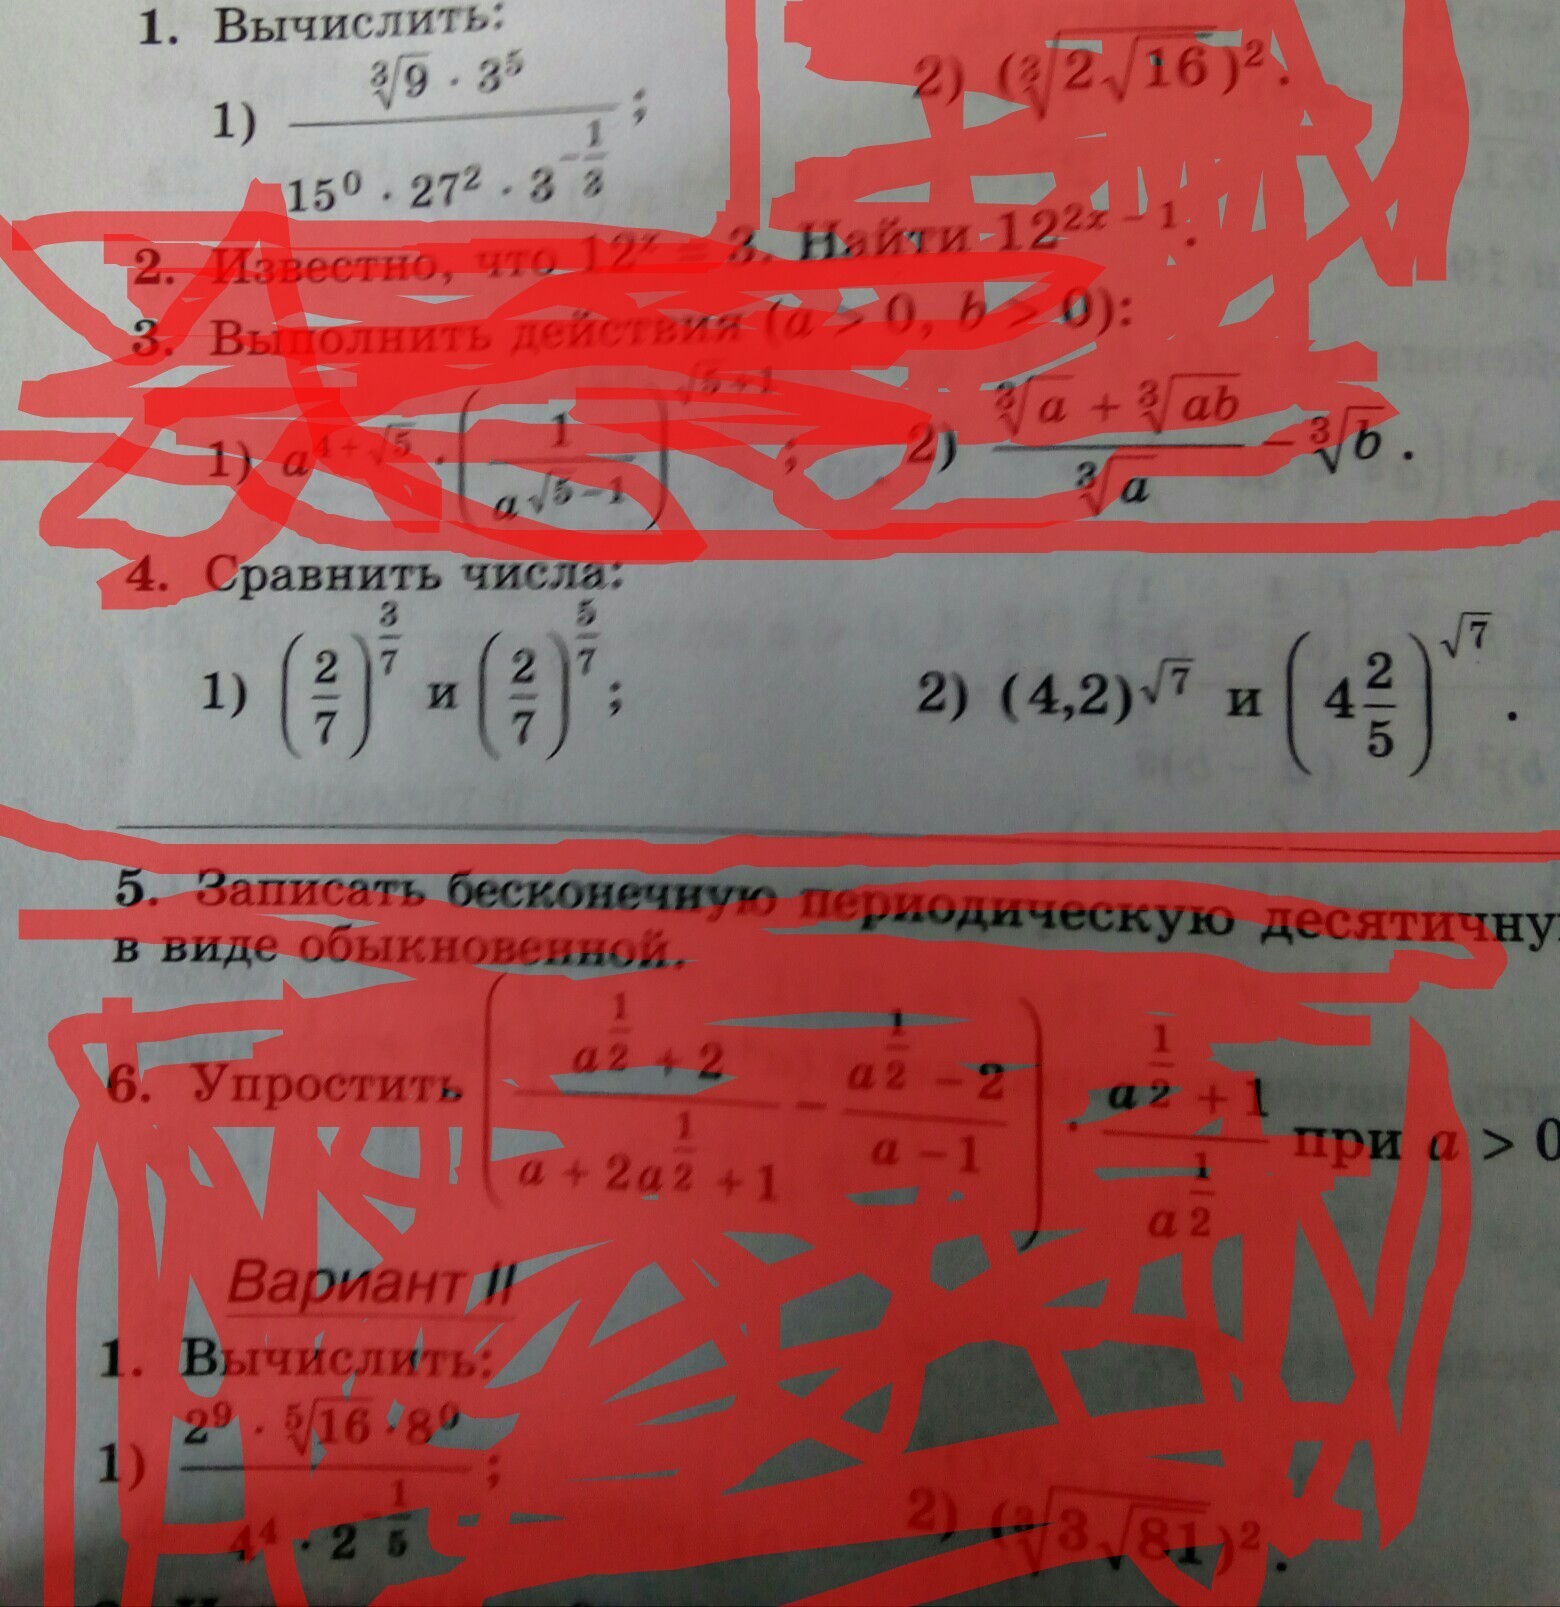 1. Вычислить:
1) \frac{\sqrt[3]{9} \cdot 3^5}{15^0 \cdot 27^2 \cdot 3^{-\frac{1}{3}}}; 2) (\sqrt[3]{2\sqrt{16}})^2.
2. Известно, что 12^x = 3. Найти 12^{2x-1}.
3. Выполнить действия (a > 0, b > 0):
1) a^{4+\sqrt{5}} \cdot \left(\frac{1}{a^{\sqrt{5}-1}}\right)^{\sqrt{5}+1}; 2) \frac{\sqrt[3]{a} + \sqrt[3]{ab}}{\sqrt[3]{a}} - \sqrt[3]{b}.
4. Сравнить числа:
1) \left(\frac{2}{7}\right)^{\frac{3}{7}} и \left(\frac{2}{7}\right)^{\frac{5}{7}}; 2) (4,2)^{\sqrt{7}} и \left(4\frac{2}{5}\right)^{\sqrt{7}}.
5. Записать бесконечную периодическую десятичну
в виде обыкновенной.
6. Упростить \left(\frac{a^{\frac{1}{2}} + 2}{a + 2a^{\frac{1}{2}} + 1} - \frac{a^{\frac{1}{2}} - 2}{a - 1}\right) \cdot \frac{a^{\frac{1}{2}} + 1}{a^{\frac{1}{2}}} при a > 0
Вариант II
1. Вычислить:
1) \frac{2^9 \cdot \sqrt[5]{16} \cdot 8^0}{4^4 \cdot 2^{-\frac{1}{5}}}; 2) (\sqrt[3]{3\sqrt{81}})^2.